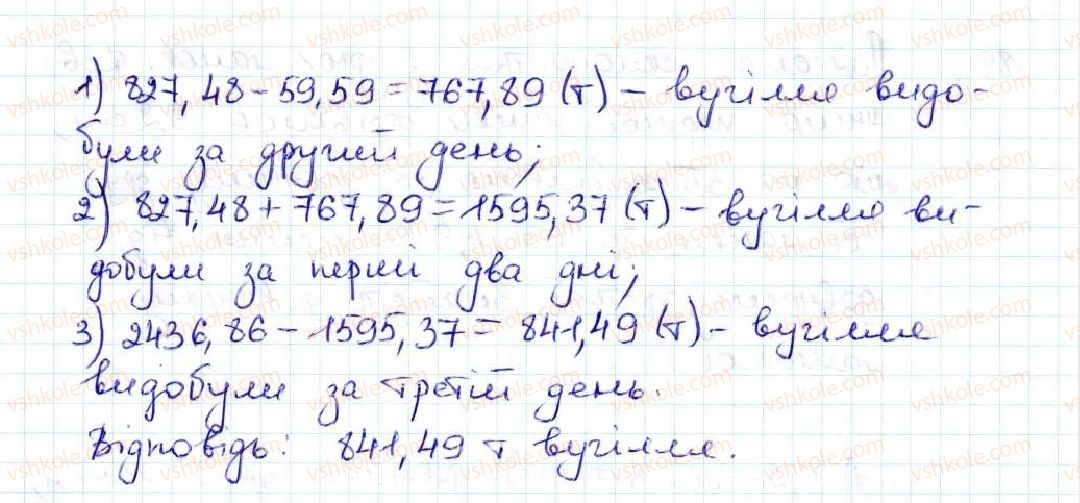 1) 827,48 - 59,59 = 767,89 (т) - вугілля видо-
були за другий день;
2) 827,48 + 767,89 = 1595,37 (т) - вугілля ви-
добули за перші два дні;
3) 2436,86 - 1595,37 = 841,49 (т) - вугілля
видобули за третій день.
Відповідь: 841,49 т вугілля.
vshkole.com